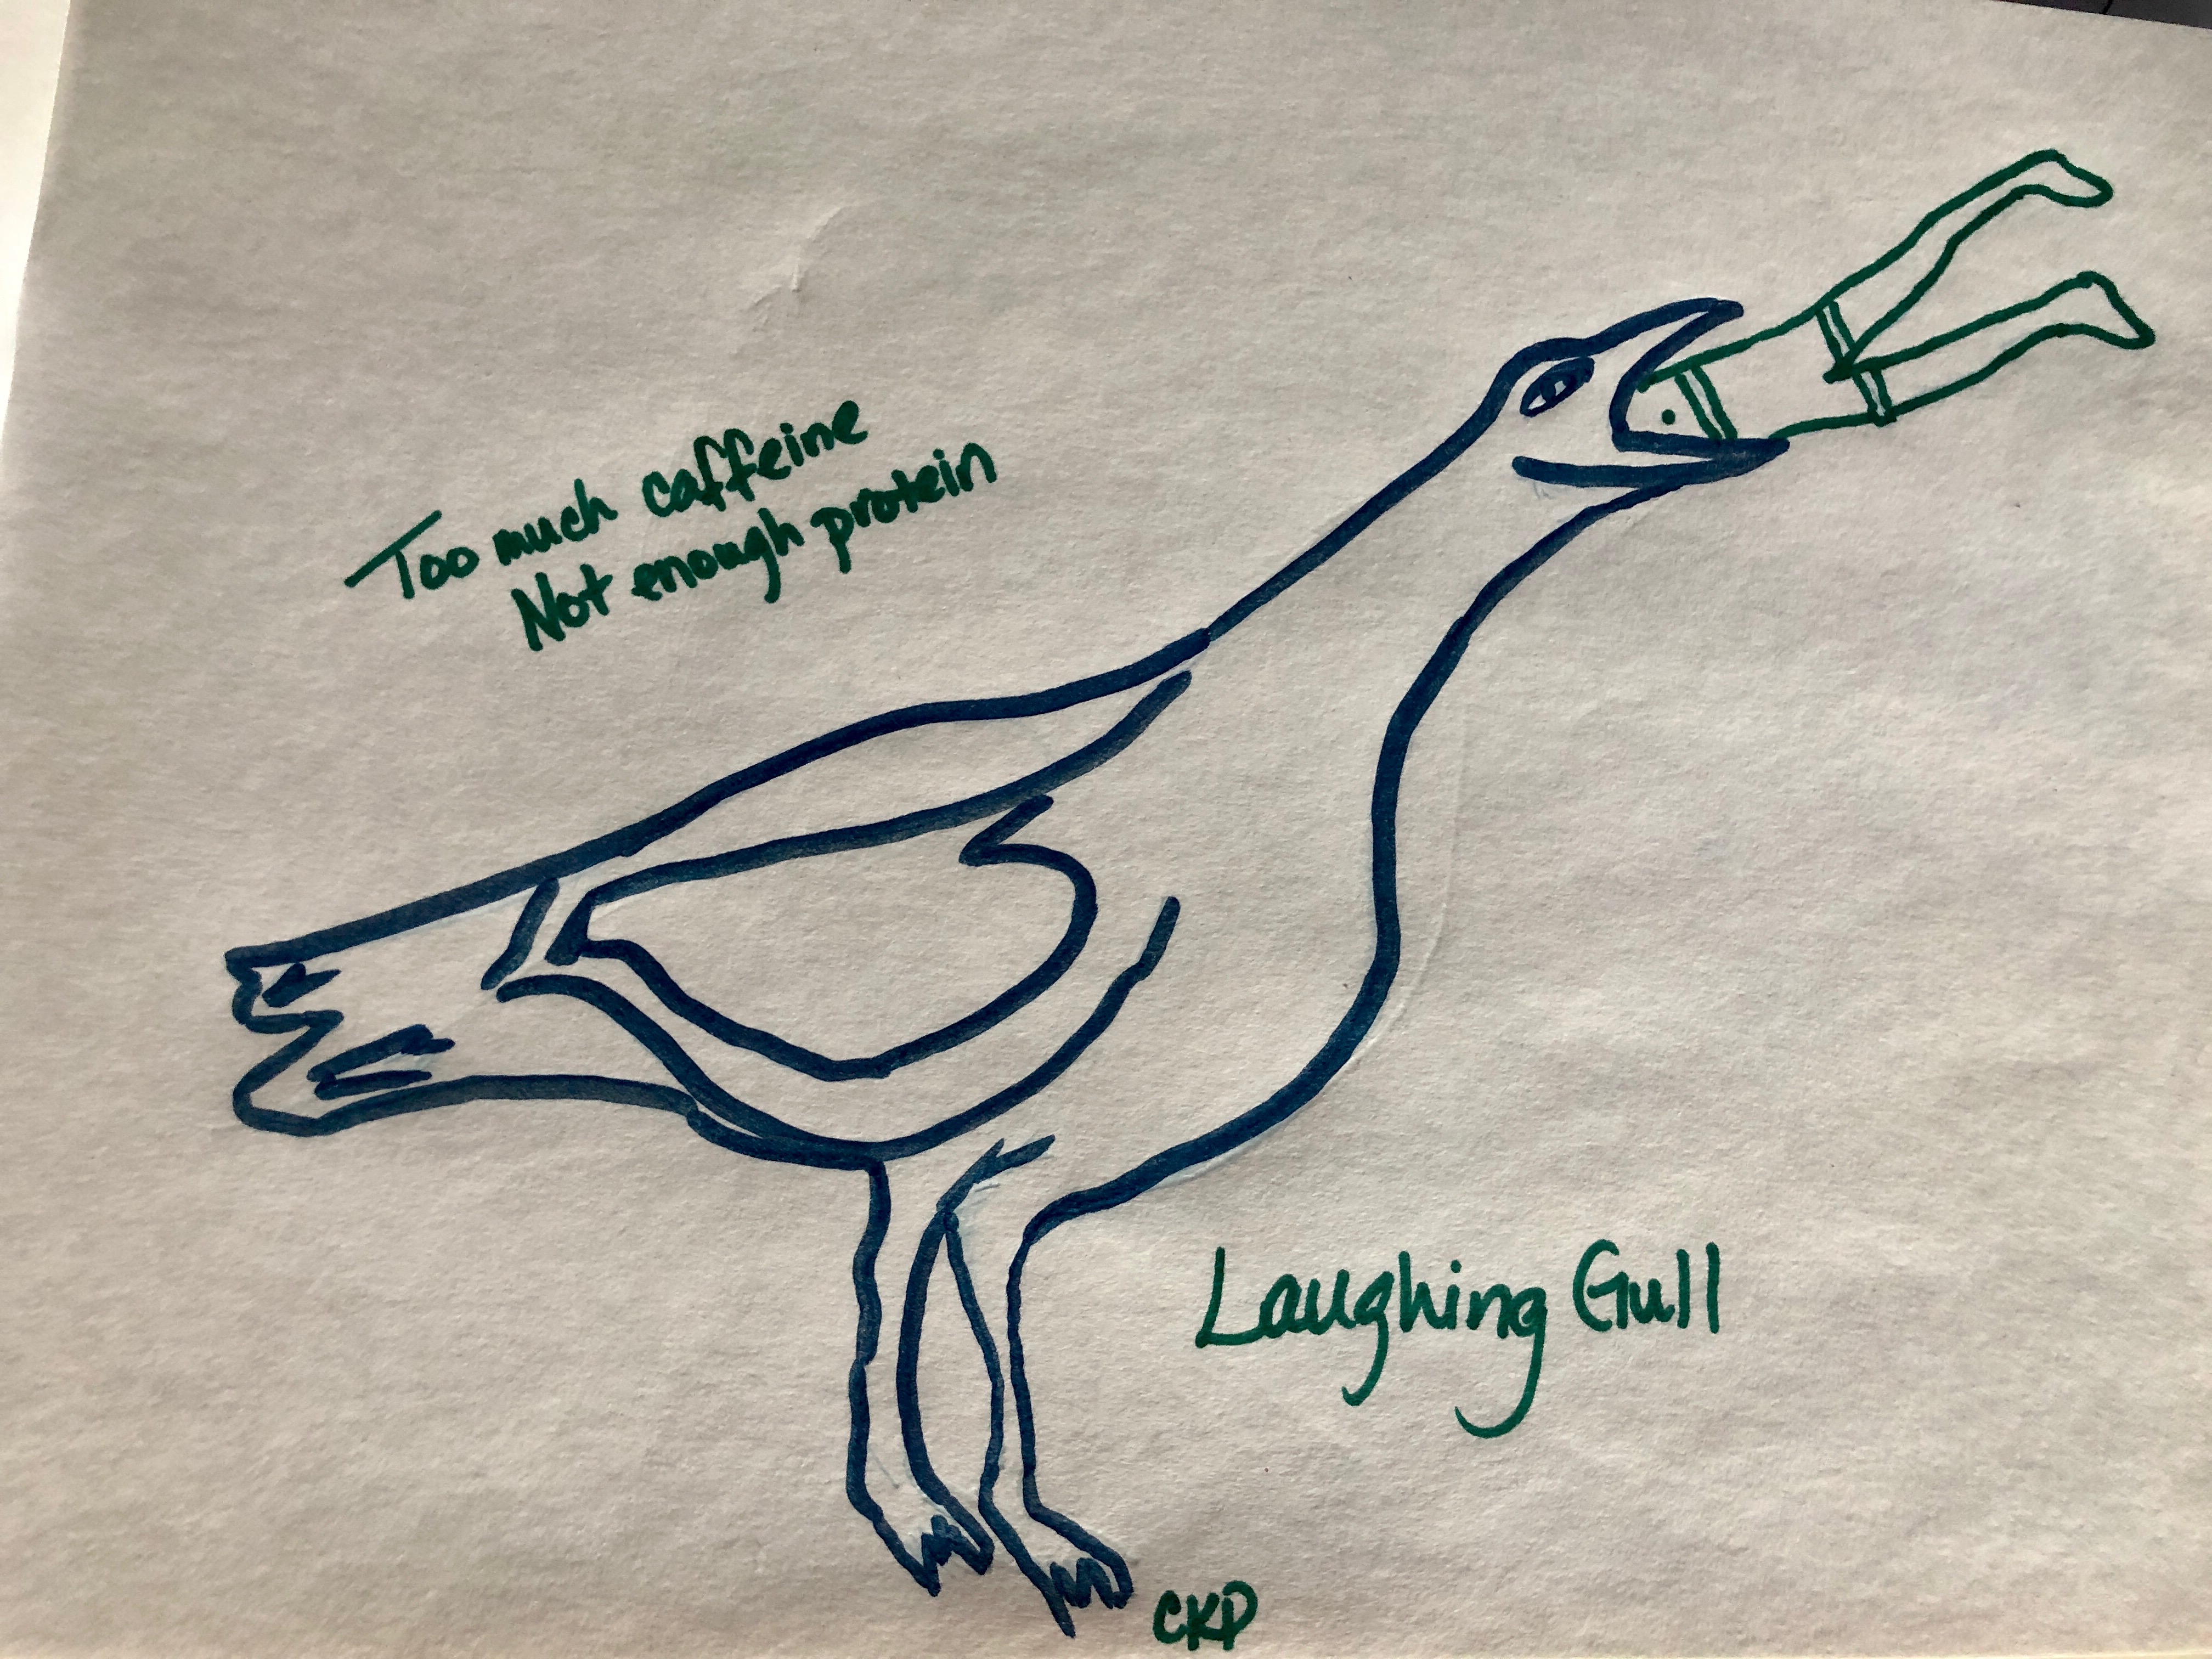 Too much caffeine
Not enough protein
Laughing Gull
CKP